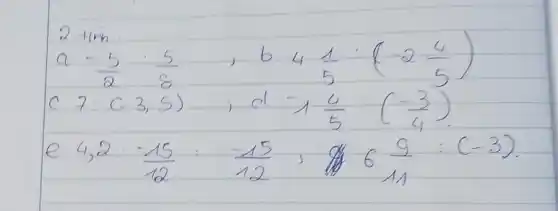 2
a -5/2 · 5/8 , b 4 1/5 : (-2 4/5)
c 7 : (3,5) , d -1 4/5 (-3/4).
e 4,2 · -15/12 : -15/12 , 6 9/11 : (-3).